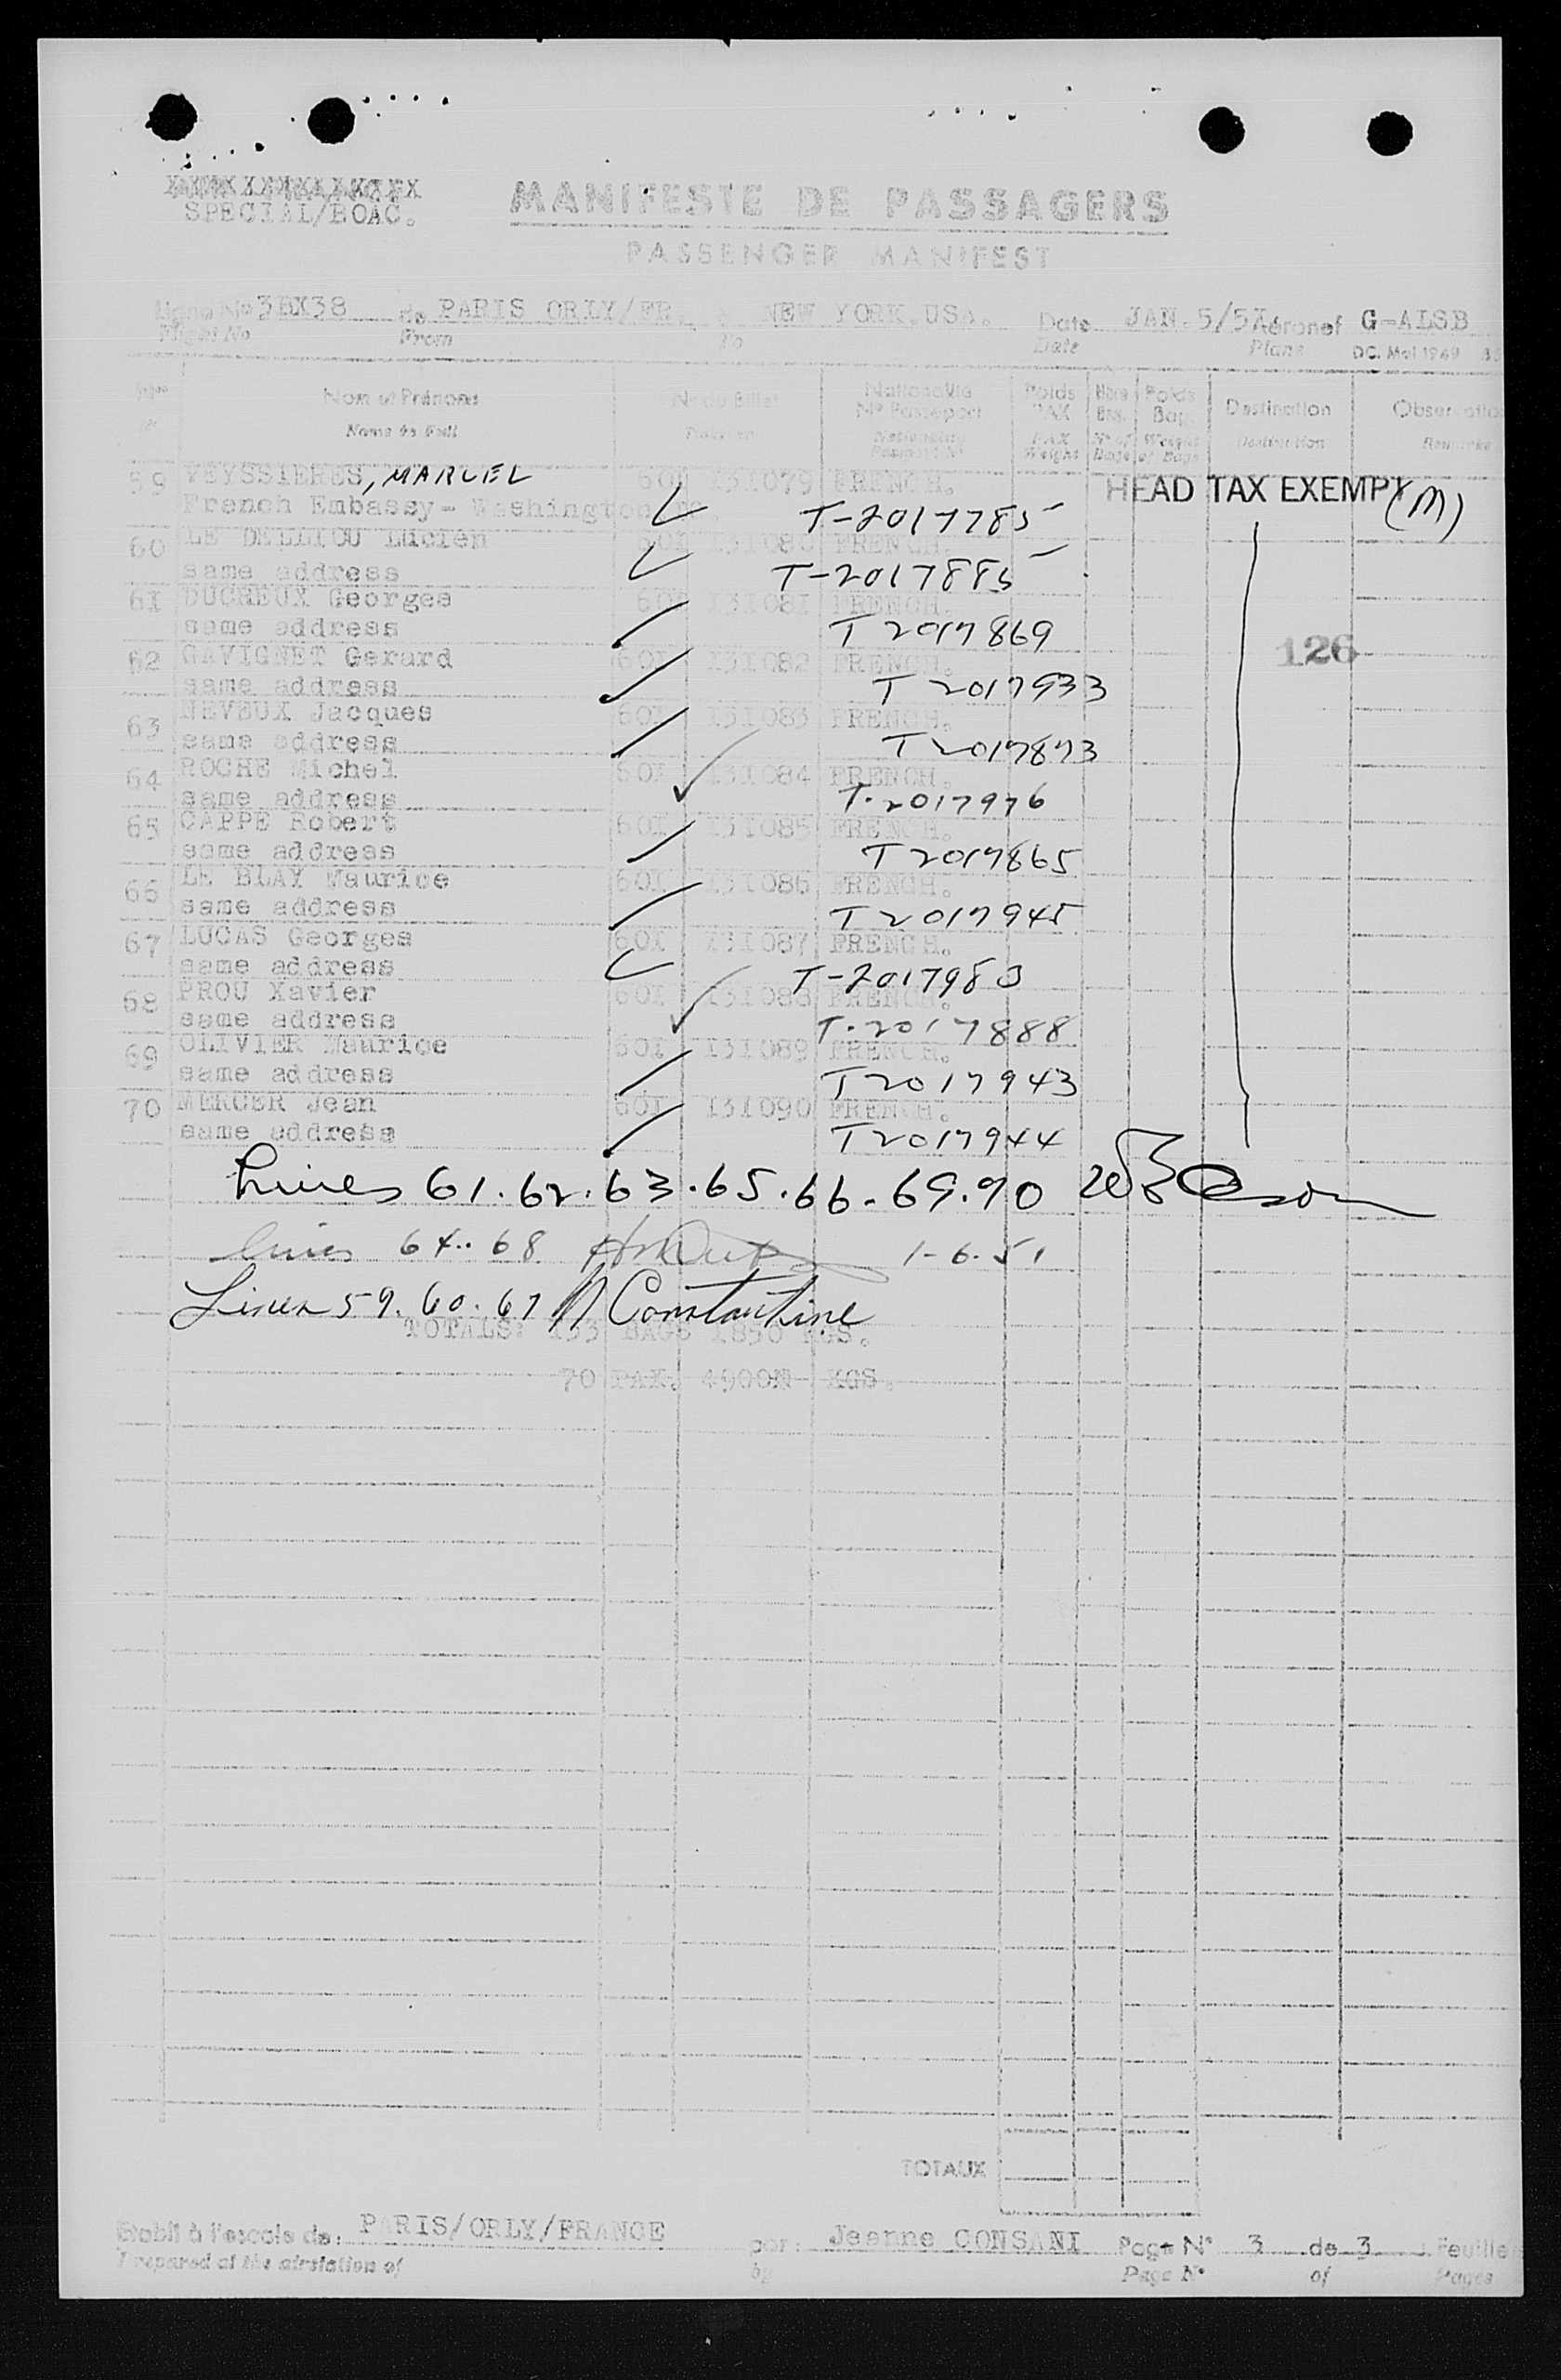 SPECIAL/BOAC.
MANIFESTE DE PASSAGERS
PASSENGER MANIFEST
Ligne No 3BX38 de PARIS ORLY/FR. à NEW YORK.USA. Date JAN.5/51 Aéronef G-ALSB
Flight No From To Date Plane DC. Mai 1949
Nom et Prénoms No du Billet Nationalité Poids Nbre Poids Destination Observations
Nº Passeport PAX Bag. Bag.
Name in Full Nationality PAX Nº of Weight Destination Remarks
Passport Nº Weight Bags of Bags
59 VEYSSIERES, MARCEL 601 131079 FRENCH. HEAD TAX EXEMPT (M)
French Embassy- Washington T-2017785
60 LE DELLIOU Lucien 601 131080 FRENCH.
same address T-2017885
61 DUCREUX Georges 601 131081 FRENCH.
same address T 2017869
62 GAVIGNET Gerard 601 131082 FRENCH. 126
same address T 2017933
63 NEVEUX Jacques 601 131083 FRENCH.
same address T 2017873
64 ROCHE Michel 601 131084 FRENCH.
same address T.2017976
65 CAPPE Robert 601 131085 FRENCH.
same address T 2017865
66 LE BLAY Maurice 601 131086 FRENCH.
same address T 2017945
67 LUCAS Georges 601 131087 FRENCH.
same address T-2017983
68 PROU Xavier 601 131088 FRENCH.
same address T.2017888
69 OLIVIER Maurice 601 131089 FRENCH.
same address T2017943
70 MERCER Jean 601 131090 FRENCH.
same address T2017944
Lines 61.62.63.65.66.69.70
Lines 64..68 1-6-51
Lines 59.60.67 Constantine
TOTALS: 133 BAGS 1850 KGS.
70 PAX. 4900 KGS.
TOTAUX
Etabli à l'escale de: PARIS/ORLY/FRANCE par: Jeanne CONSANI Page Nº 3 de 3 Feuilles
Prepared at the airstation of by Page Nº of Pages